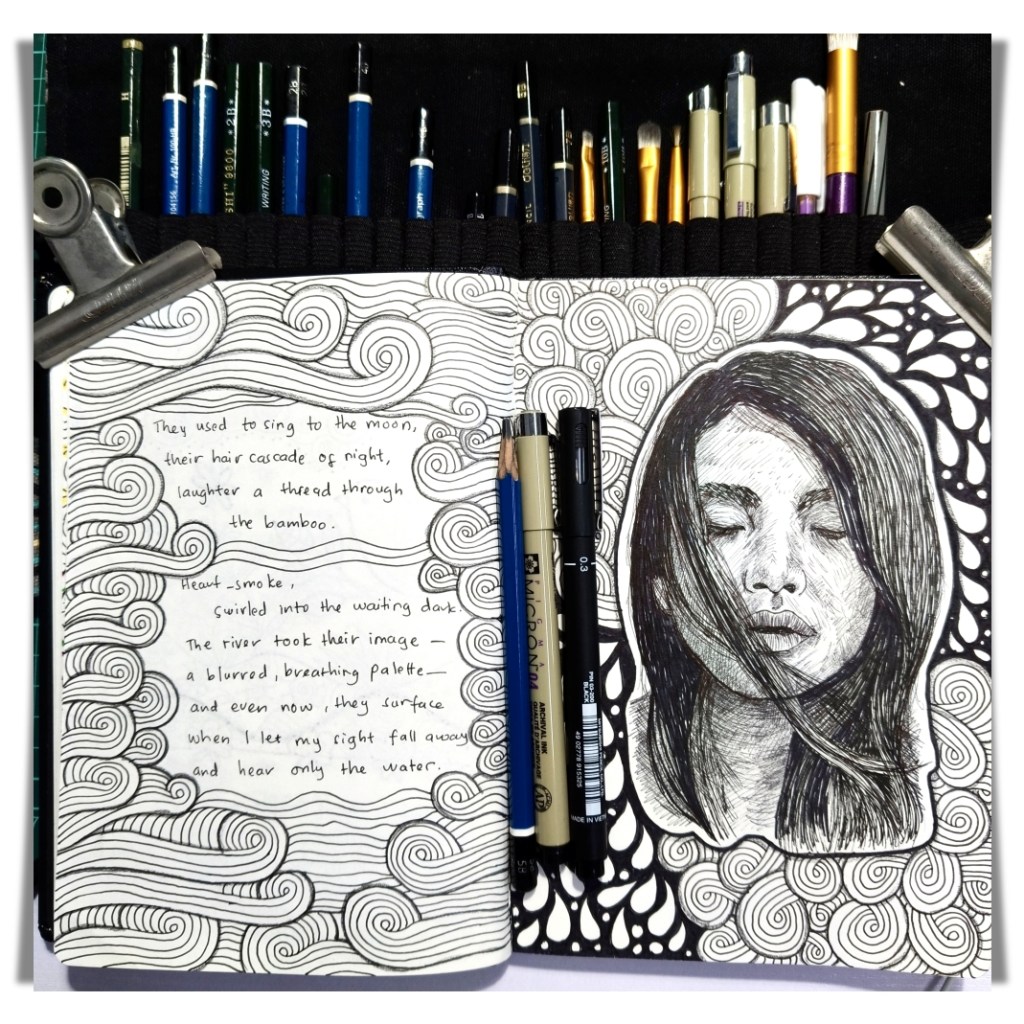 SHI" 9800 *2B*
WRITING *3B*
2B
They used to sing to the moon,
their hair cascade of night,
laughter a thread through
the bamboo.
Heart-smoke,
swirled into the waiting dark.
The river took their image —
a blurred, breathing palette —
and even now, they surface
when I let my sight fall away
and hear only the water.
MICRON
ARCHIVAL INK
QUALITÉ D'ARCHIVAGE
0.3
BLACK
49 02778 915325
MADE IN VIET
5B